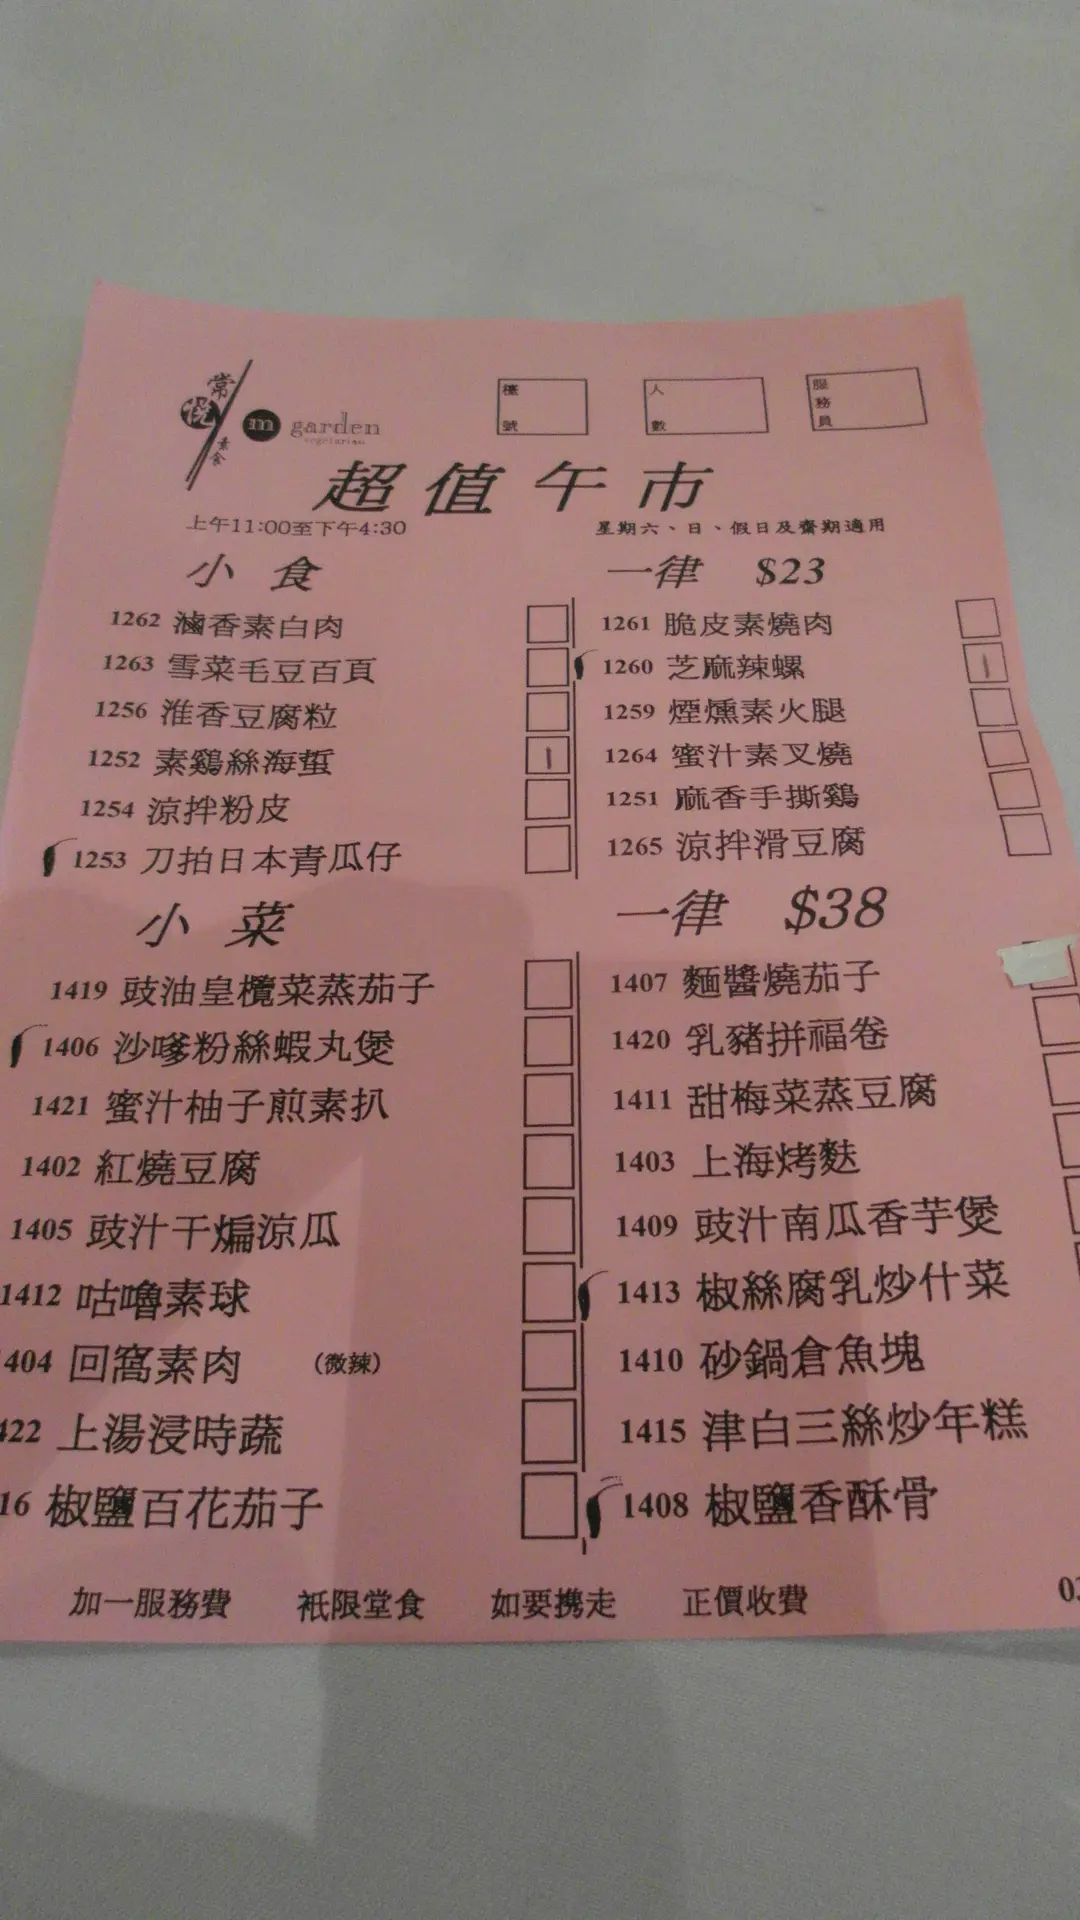 常悅素食
m garden
vegetarian
檯號
人數
服務員
超值午市
上午11:00至下午4:30
星期六、日、假日及齋期適用
小食 一律 $23
1262 滷香素白肉
1263 雪菜毛豆百頁
1256 淮香豆腐粒
1252 素鷄絲海蜇
1254 涼拌粉皮
1253 刀拍日本青瓜仔
1261 脆皮素燒肉
1260 芝麻辣螺
1259 煙燻素火腿
1264 蜜汁素叉燒
1251 麻香手撕鷄
1265 涼拌滑豆腐
小菜 一律 $38
1419 豉油皇欖菜蒸茄子
1406 沙嗲粉絲蝦丸煲
1421 蜜汁柚子煎素扒
1402 紅燒豆腐
1405 豉汁干煸涼瓜
1412 咕嚕素球
404 回窩素肉 (微辣)
422 上湯浸時蔬
16 椒鹽百花茄子
1407 麵醬燒茄子
1420 乳豬拼福卷
1411 甜梅菜蒸豆腐
1403 上海烤麩
1409 豉汁南瓜香芋煲
1413 椒絲腐乳炒什菜
1410 砂鍋倉魚塊
1415 津白三絲炒年糕
1408 椒鹽香酥骨
加一服務費 祇限堂食 如要携走 正價收費